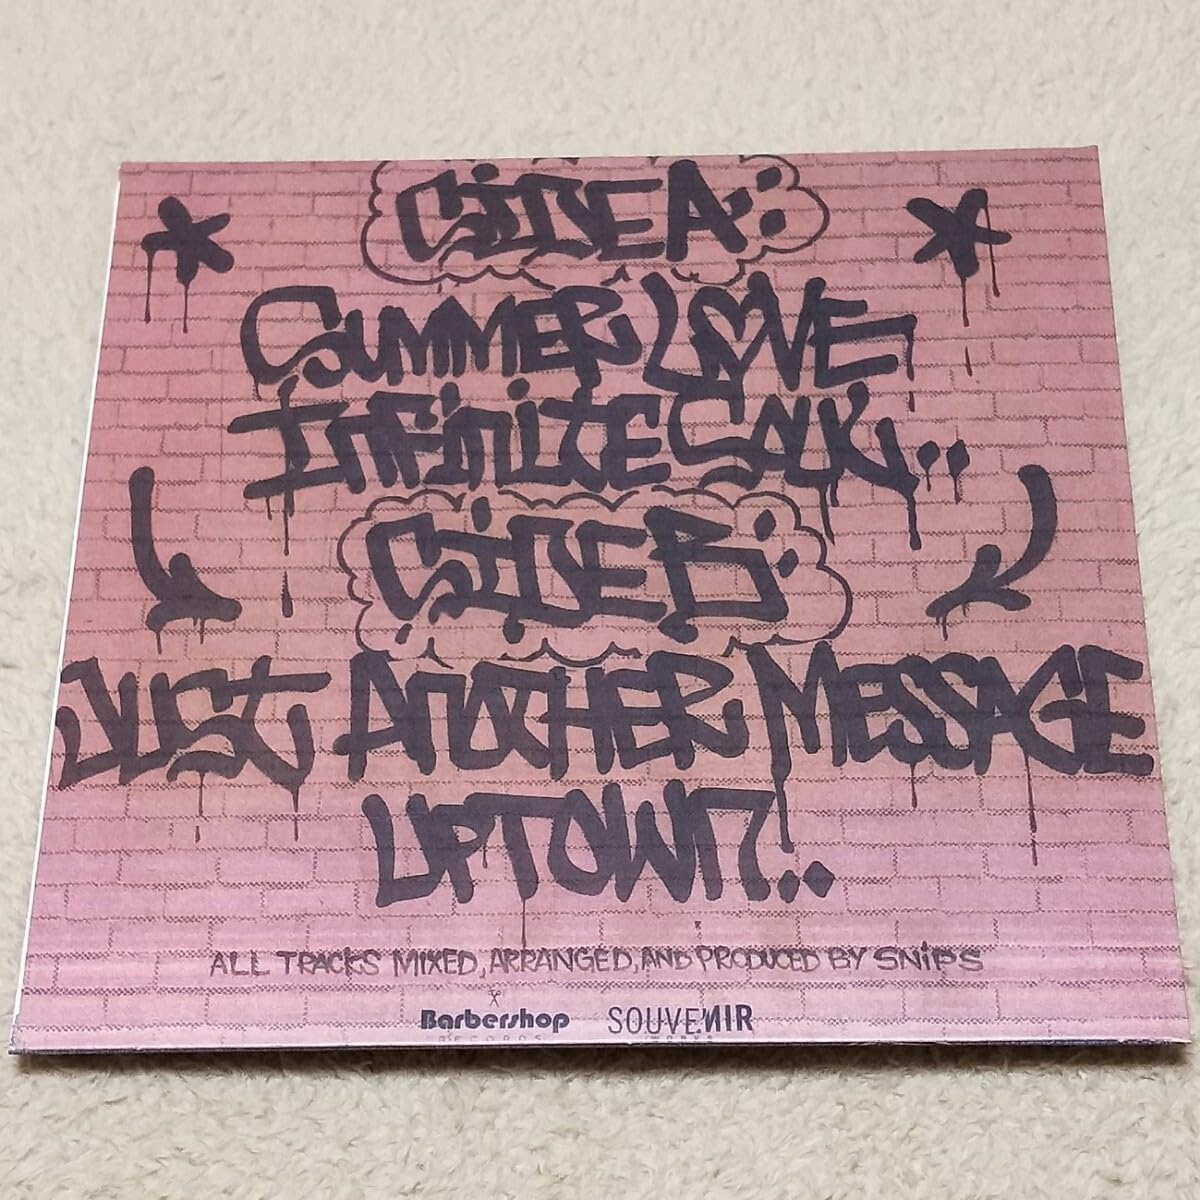 SIDE A:
SUMMER LOVE
INFINITE SOUL..
SIDE B:
JUST ANOTHER MESSAGE
UPTOWN!..
ALL TRACKS MIXED, ARRANGED, AND PRODUCED BY SNIPS
Barbershop SOUVENIR
RECORDS WORKS